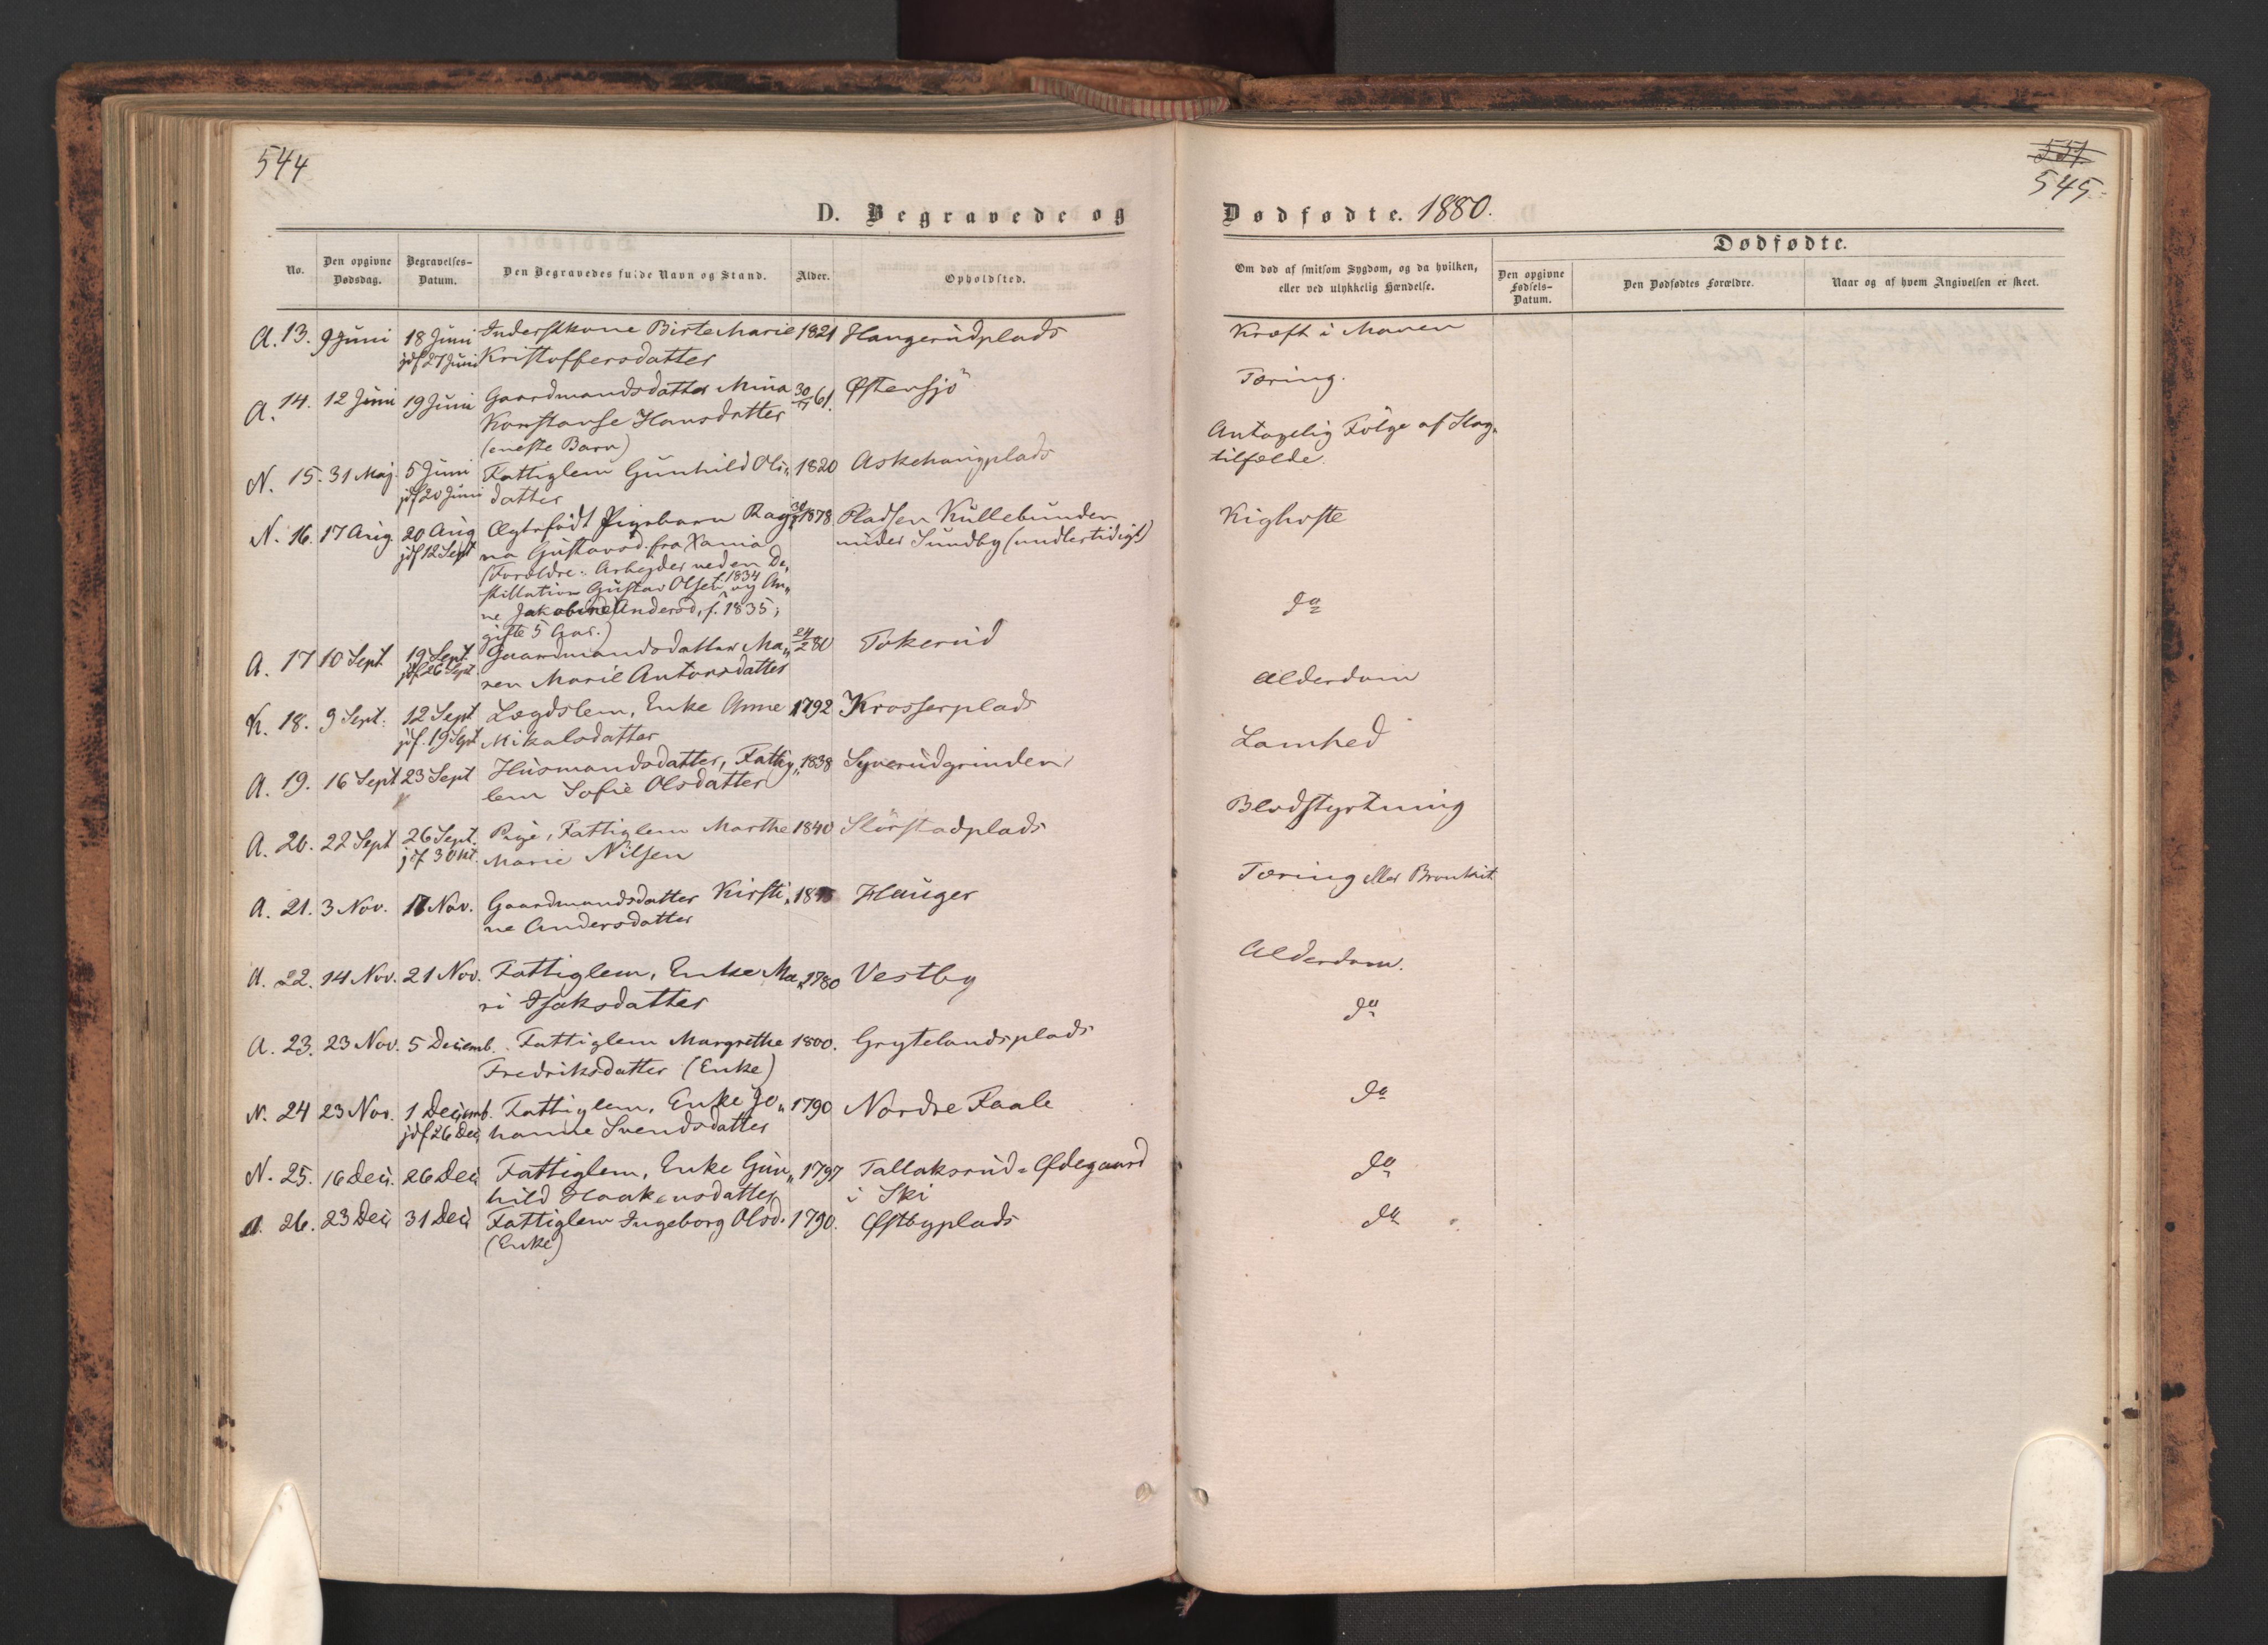 544
D. Begravede og
No.
Den opgivne Dødsdag.
Begravelses-Datum.
Den Begravedes fulde Navn og Stand.
Alder.
Opholdsted.
A. 13. 9 Juni 18 Juni Inderstkone Birte Marie 1821 Haugerudplads
jdf 27 Juni Kristoffersdatter
A. 14. 12 Juni 19 Juni Gaardmandsdatter Mina 30/11 61. Østensjö
Konstanse Hansdatter
(eneste Barn)
N. 15. 31 Maj 5 Juni Fattiglem Gunhild Ols- 1820 Askehaugplads
jdf 20 Juni datter
N. 16. 17 Aug. 20 Aug Ægtefødt Pigebarn Rag- 1878. Pladsen Kullebunden
jdf 12 Sept na Gustavsd. fra Xania under Sundby (midlertidigt)
(Forældre: Arbejder ved en De-
stillation Gustav Olsen, f. 1834 og An-
ne Jakobine Andersd, f. 1835;
gifte 5 Aar.)
A. 17 10 Sept 19 Sept. Gaardmandsdatter Ma- 24/2 80 Tokerud
jdf 26 Sept. ren Marie Antonsdatter
K. 18. 9 Sept. 12 Sept Lægdslem, Enke Anne 1792 Krosserplads
jdf. 19 Sept. Mikalsdatter
A. 19. 16 Sept 23 Sept Husmandsdatter, Fattig- 1838 Syverudgrinden
lem Sofie Olsdatter
A. 20. 22 Sept 26 Sept. Pige, Fattiglem Marthe 1840 Slörstadplads
jdf 3 Okt. Marie Nilsen
A. 21. 3 Nov. 17 Nov. Gaardmandsdatter Kirsti- Hauger
ne Andersdatter
A. 22. 14 Nov. 21 Nov. Fattiglem, Enke Ma- 1780 Vestby
ri Isaksdatter
A. 23. 23 Nov. 5 Decemb. Fattiglem Margrethe 1800. Grytelandsplads
Fredriksdatter (Enke)
N. 24 23 Nov. 1 Decemb. Fattiglem, Enke Jo- 1790 Nordre Faale
jdf 26 Dec. hanne Svendsdatter
N. 25. 16 Dec. 26 Dec Fattiglem, Enke Gun- 1797 Tallaksrud-Ødegaard
hild Haakensdatter i Ski
A. 26. 23 Dec. 31 Dec Fattiglem Ingeborg Olsd. 1790. Østbyplads
(Enke)
551.
545.
Dødfødte. 1880.
Om død af smitsom Sygdom, og da hvilken, eller ved ulykkelig Hændelse.
Dødfødte.
Den opgivne Fødsels-Datum.
Den Dødfødtes Forældre.
Naar og af hvem Angivelsen er skeet.
Kræft i Maven
Tæring.
Antagelig Følge af Slag-
tilfælde.
Kighoste
do
Alderdom
Lamhed
Blodstyrtning
Tæring eller Bronkit
Alderdom.
do
do
do
do